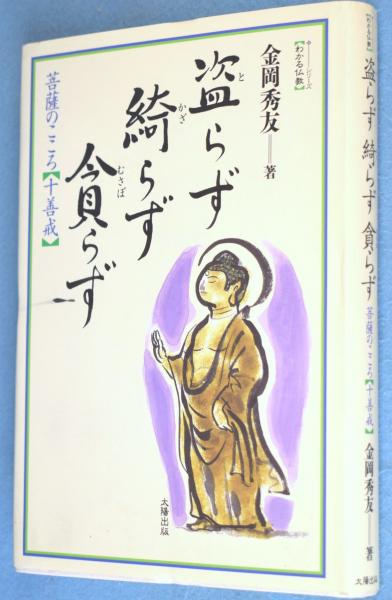 シリーズ
【わかる仏教】
金岡秀友──著
盗らず
と
綺らず
かざ
貪らず
むさぼ
菩薩のこころ【十善戒】
太陽出版
【わかる仏教】
盗らず 綺らず 貪らず
菩薩のこころ【十善戒】
金岡秀友──著
太陽出版